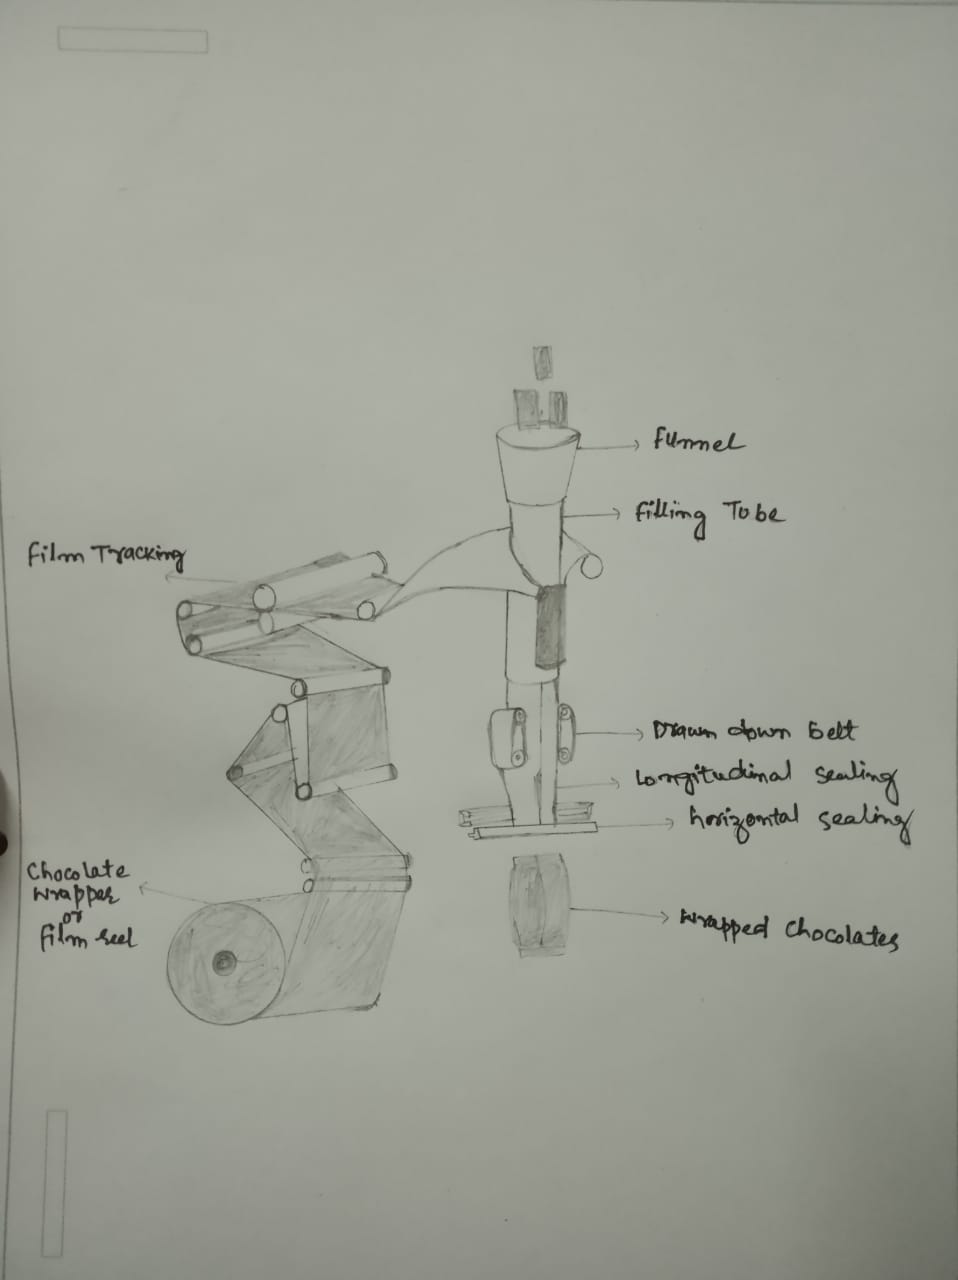 Funnel
Filling Tube
Film Tracking
Drawn down belt
Longitudinal sealing
horizontal sealing
Chocolate
wrapper
or
Film reel
Wrapped chocolates